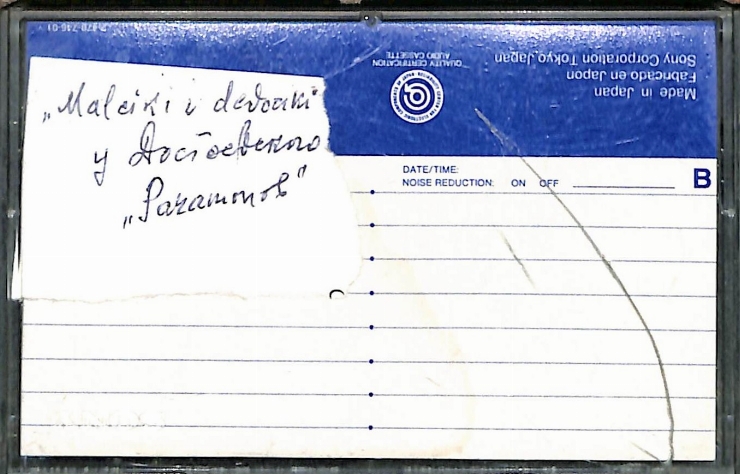 „Malciki i devocki"
у Достоевского
„Paramonov"
QUALITY CERTIFICATION
AUDIO CASSETTE
Made in Japan
Fabricado en Japon
Sony Corporation Tokyo, Japan
DATE/TIME:
NOISE REDUCTION: ON OFF
B